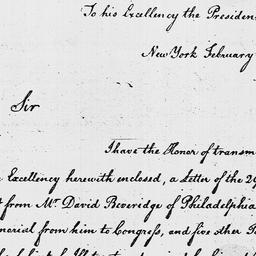 To his Excellency the Presiden
New York February
Sir
I have the Honor of transm
Excellency herewith enclosed, a Letter of the 29
from Mr David Beveridge of Philadelphia
morial from him to Congress, and five other